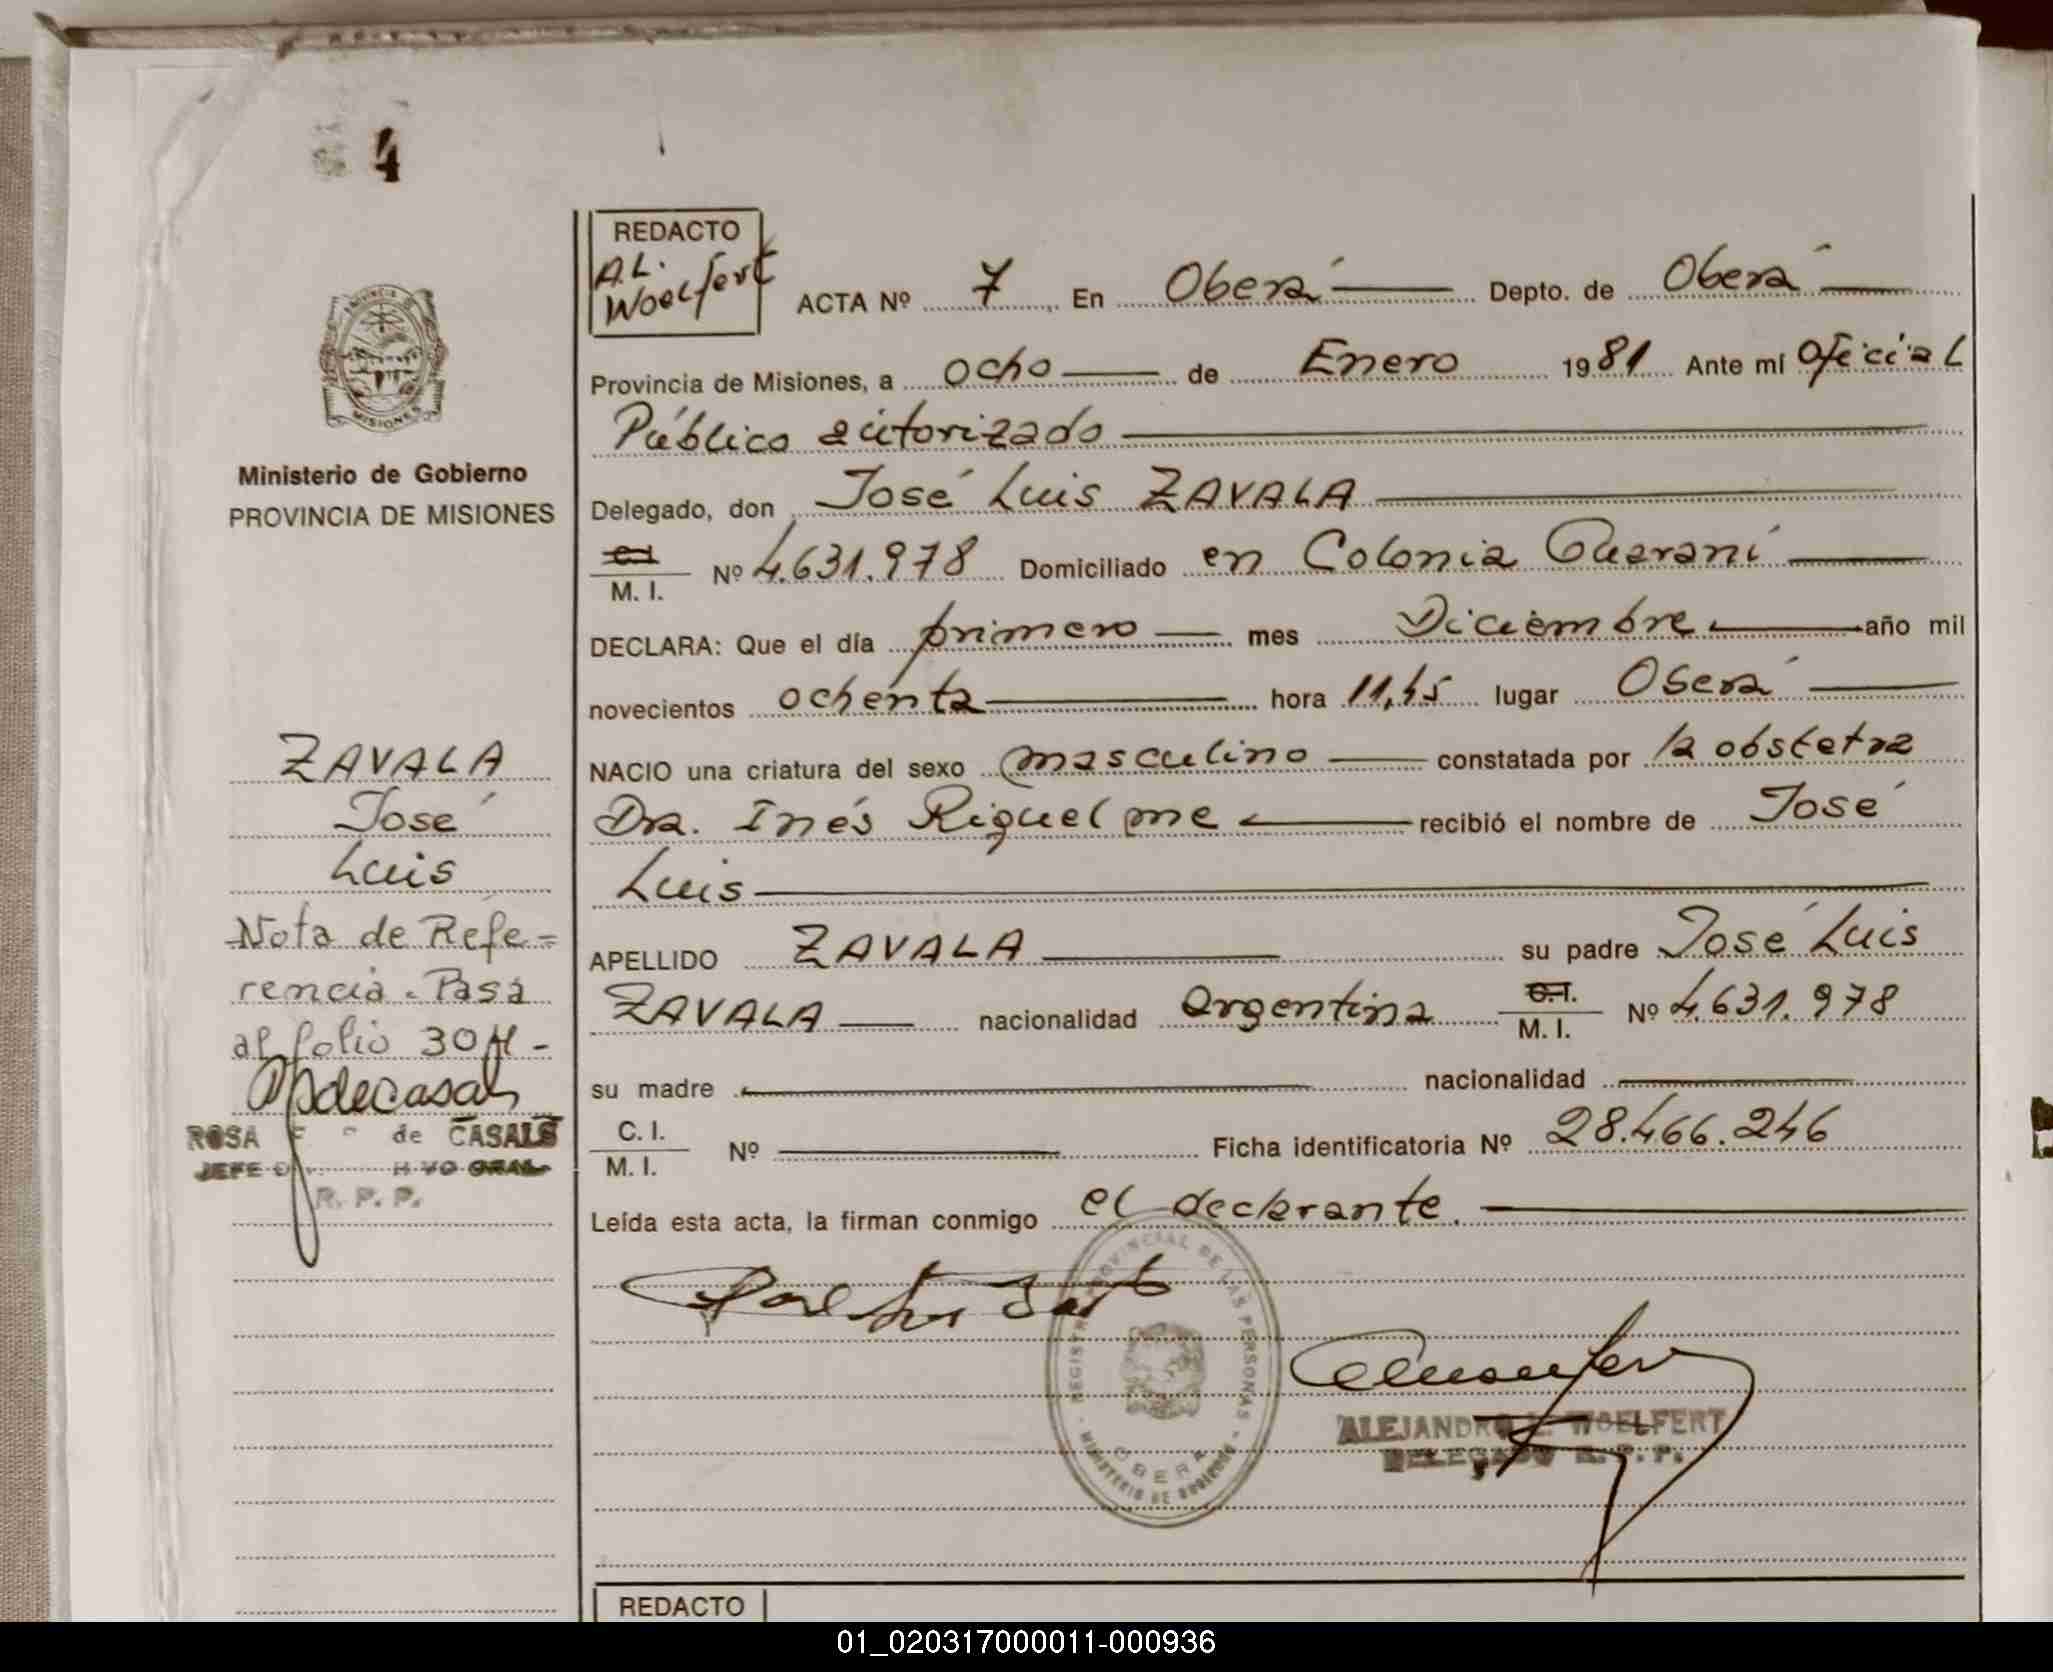 4
REDACTO
A.L.
Woelfert
ACTA Nº 7 En Oberá Depto. de Oberá
Provincia de Misiones, a ocho de Enero 1981 Ante mí Oficial
Público autorizado
Delegado, don José Luis ZAVALA
C.I.
M. I. Nº 4.631.978 Domiciliado en Colonia Guaraní
DECLARA: Que el día primero mes Diciembre año mil
novecientos ochenta hora 11,45 lugar Oberá
NACIO una criatura del sexo masculino constatada por la obstetra
Dra. Inés Riquelme recibió el nombre de José
Luis
APELLIDO ZAVALA su padre José Luis
ZAVALA nacionalidad argentina C.I.
M. I. Nº 4.631.978
su madre nacionalidad
C. I.
M. I. Nº Ficha identificatoria Nº 28.466.246
Leída esta acta, la firman conmigo el declarante.
REGISTRO PROVINCIAL DE LAS PERSONAS
OBERA
MINISTERIO DE GOBIERNO
ALEJANDRO L. WOELFERT
DELEGADO R. P. P.
PROVINCIA DE
MISIONES
Ministerio de Gobierno
PROVINCIA DE MISIONES
ZAVALA
José
Luis
Nota de Refe=
rencia. Pasa
al folio 304 -
ROSA de CASALS
JEFE
R. P. P.
REDACTO
01_020317000011-000936